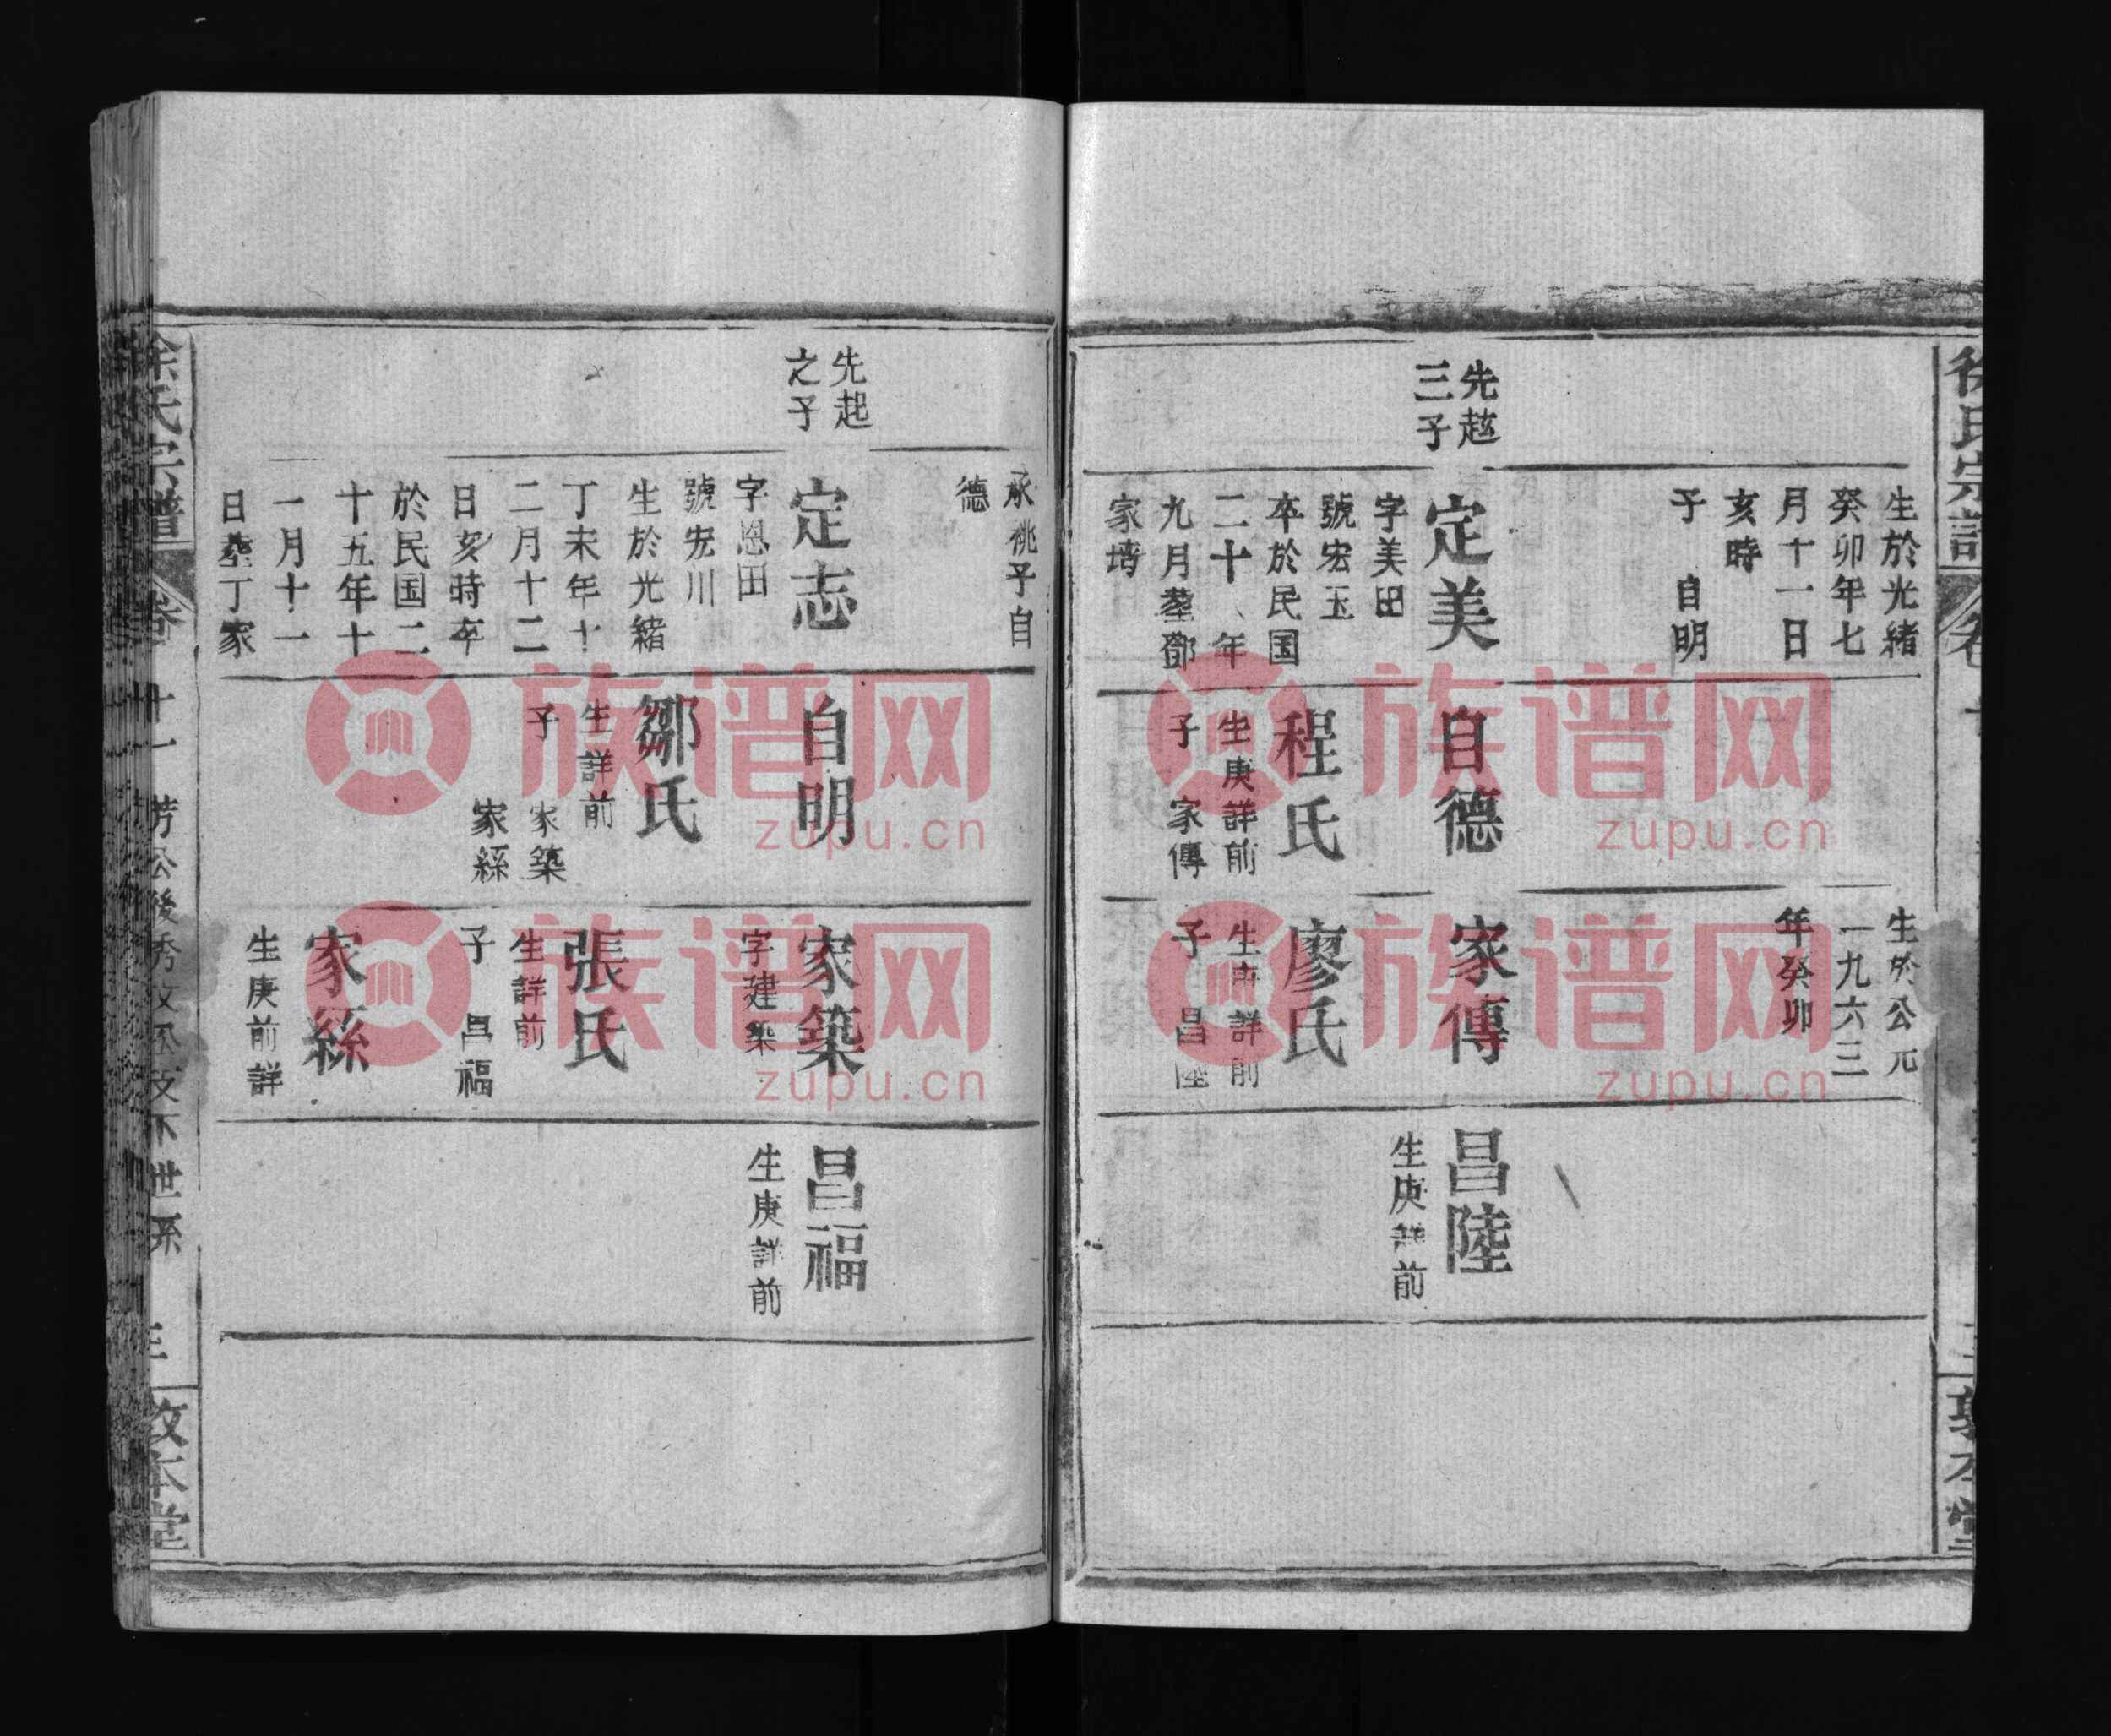 徐氏宗譜
卷
敦本堂
先越
三子
生於光緒
癸卯年七
月十一日
亥時
子 自明
定美
字美田
號宏玉
卒於民国
二十八年
九月塟鄧
家塝
自德
程氏
生庚詳前
子 家傳
生於公元
一九六三
年癸卯
家傳
廖氏
生庚詳前
子 昌陸
昌陸
生庚詳前
先起
之子
承祧子自
德
定志
字恩田
號宏川
生於光緒
丁未年十
二月十二
日亥時卒
於民国二
十五年十
一月十一
日塟丁家
自明
鄒氏
生詳前
子 家築
家絲
家築
字建築
張氏
生詳前
子 昌福
家絲
生庚前詳
昌福
生庚詳前
徐氏宗譜
卷十一
世系
三
敦本堂
族谱网
zupu.cn
族谱网
zupu.cn
族谱网
zupu.cn
族谱网
zupu.cn